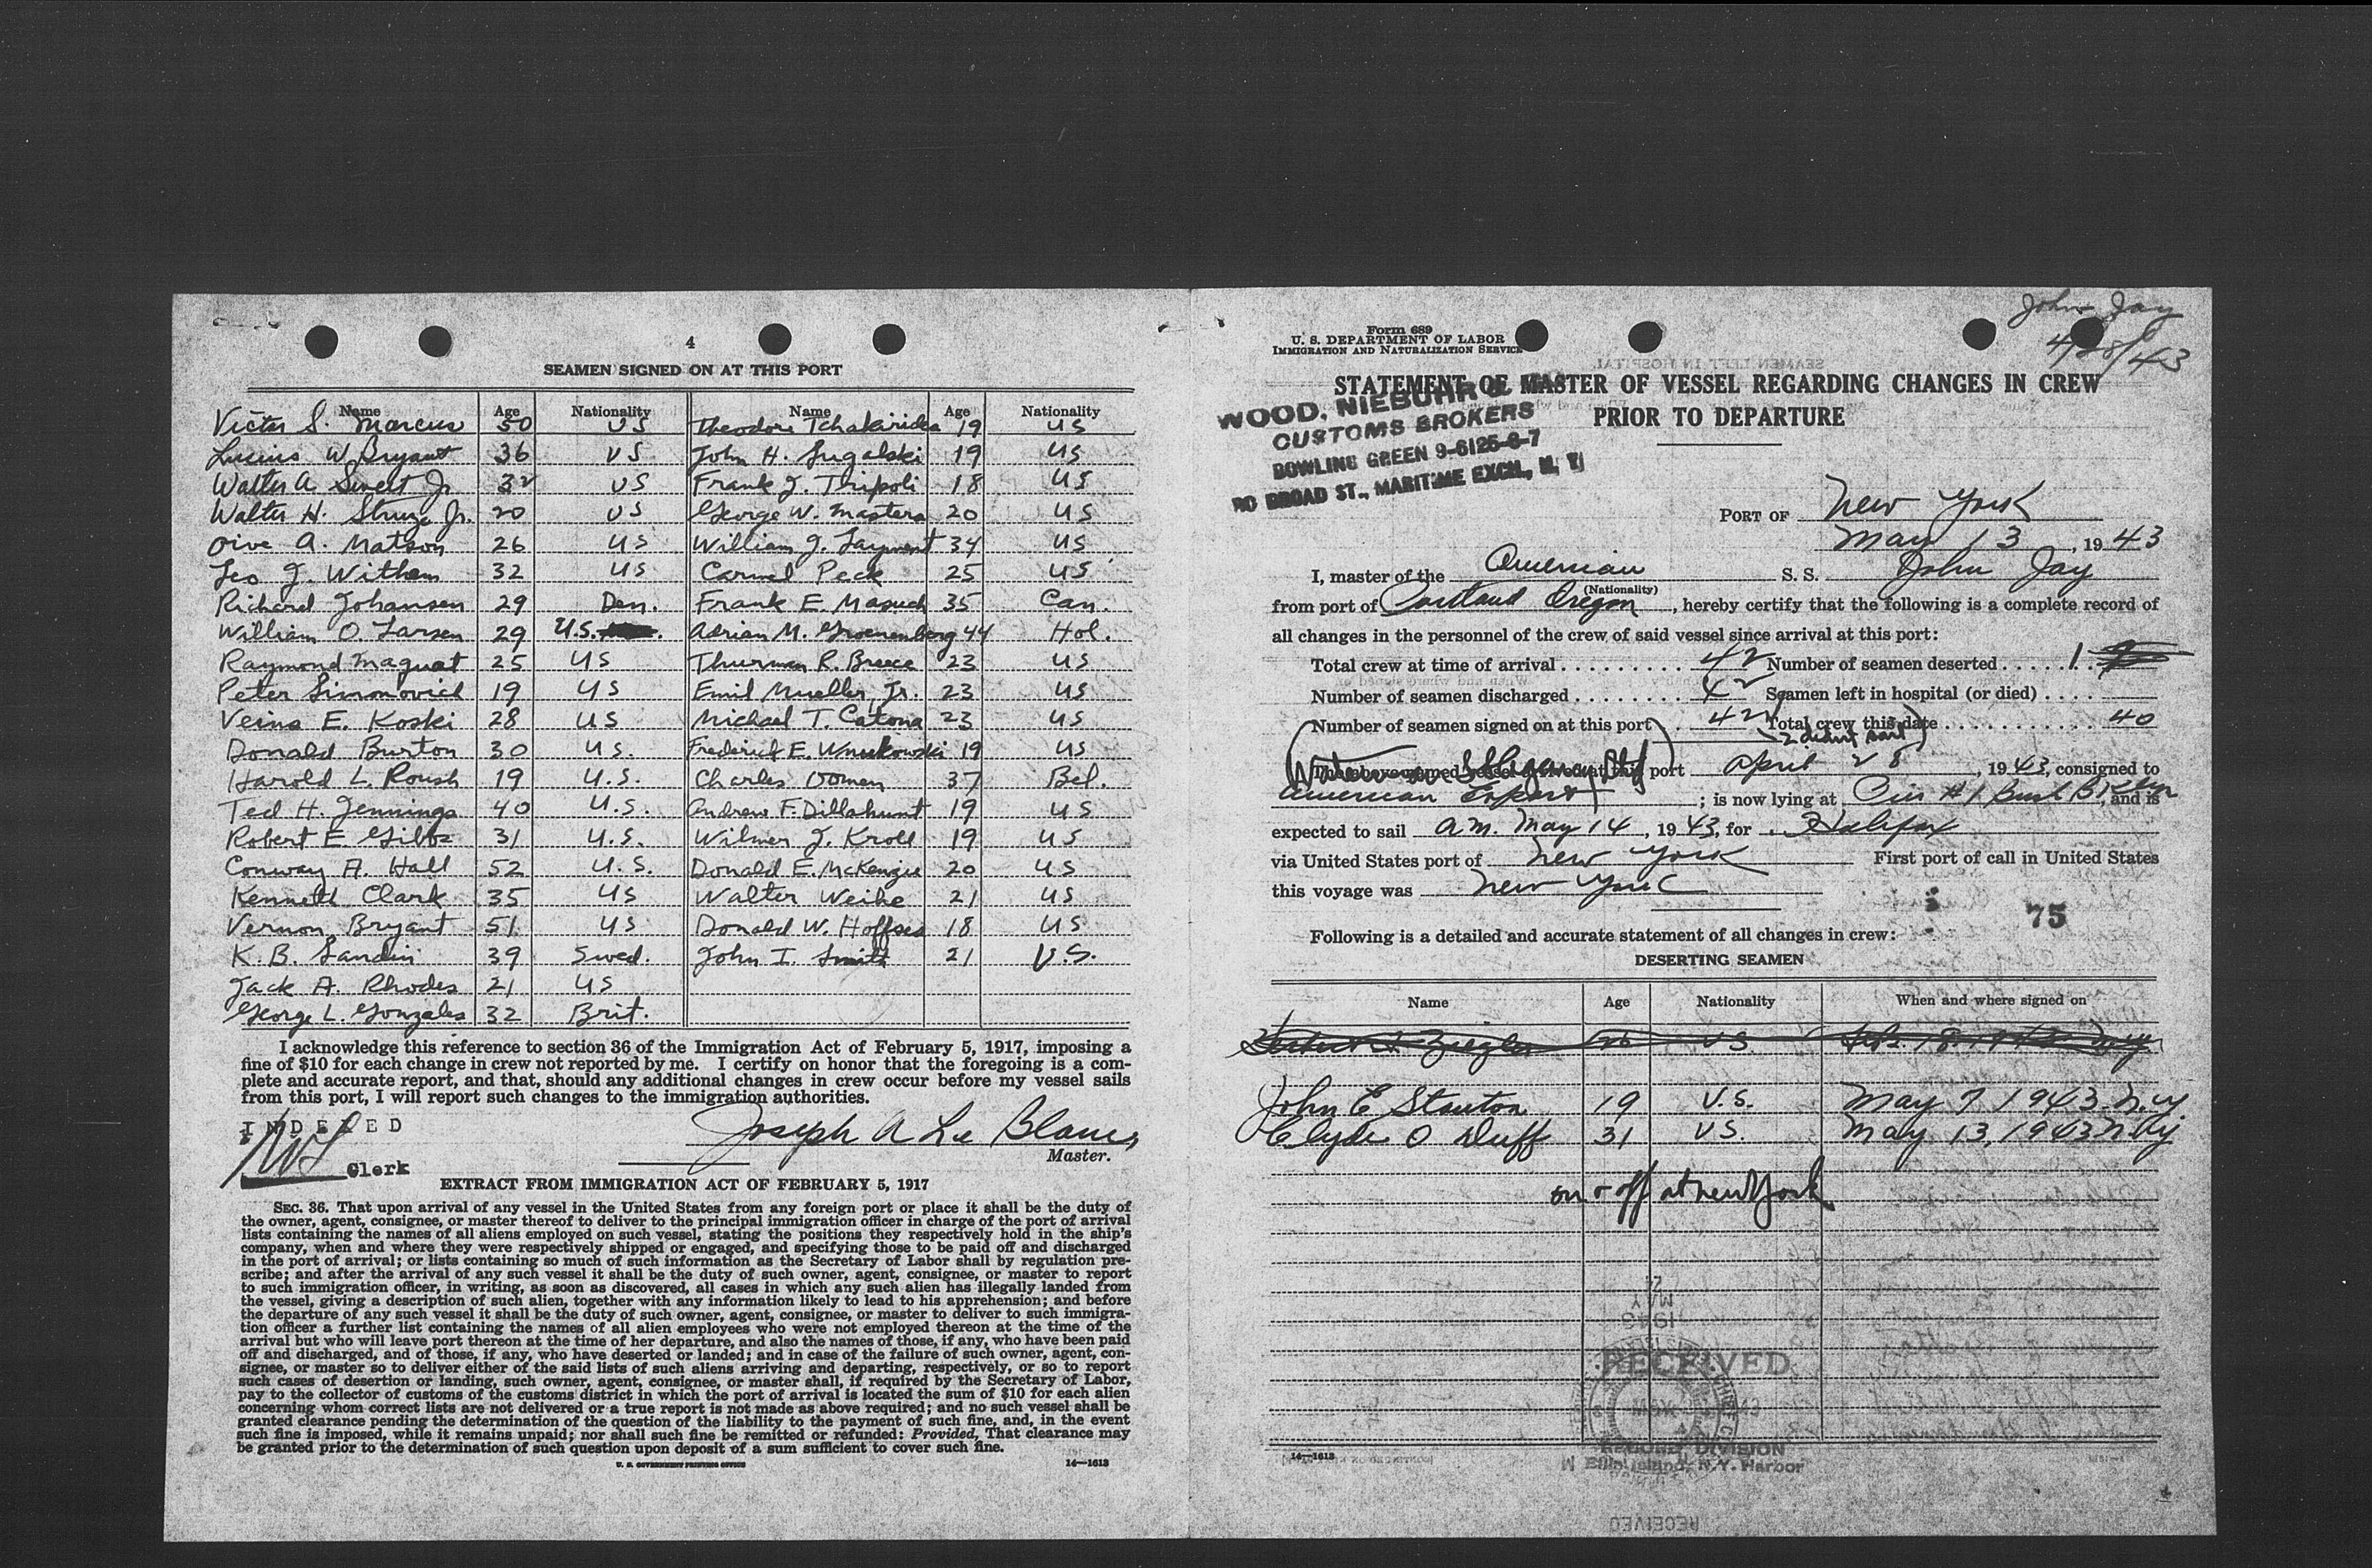 4
SEAMEN SIGNED ON AT THIS PORT
Name Age Nationality Name Age Nationality
Victor S. Marcus 50 US Theodore Tchakirides 19 US
Lucius W Bryant 36 US John H. Sugalski 19 US
Walter A. Sweet Jr 32 US Frank J. Tripoli 18 US
Walter H. Strunge Jr. 20 US George W. Masters 20 US
Oive A. Matson 26 US William J. Layment 34 US
Leo J. Witham 32 US Carmel Peck 25 US
Richard Johansen 29 Den. Frank E. Masuch 35 Can.
William O. Larsen 29 U.S. Adrian M. Groenenberg 44 Hol.
Raymond Maguat 25 US Thurman R. Breece 23 US
Peter Simonovich 19 US Emil Mueller, Jr. 23 US
Veino E. Koski 28 US Michael T. Catona 23 US
Donald Burton 30 US. Frederick E. Wnukowski 19 US
Harold L. Roush 19 U.S. Charles Oomen 37 Bel.
Ted H. Jennings 40 U.S. Andrew F. Dillahunt 19 US
Robert E Gibbs 31 U.S. Wilmer J. Kroll 19 US
Conway A. Hall 52 U.S. Donald E. McKenzie 20 US
Kenneth Clark 35 US Walter Weihe 21 US
Vernon Bryant 51 US Donald W. Hoffses 18 US
K.B. Sandin 39 Swed. John I. Smith 21 U.S.
Jack A. Rhodes 21 US
George L. Gonzales 32 Brit.
I acknowledge this reference to section 36 of the Immigration Act of February 5, 1917, imposing a
fine of $10 for each change in crew not reported by me. I certify on honor that the foregoing is a com-
plete and accurate report, and that, should any additional changes in crew occur before my vessel sails
from this port, I will report such changes to the immigration authorities.
INDEXED
Clerk
Joseph A Le Blanc
Master.
EXTRACT FROM IMMIGRATION ACT OF FEBRUARY 5, 1917
SEC. 36. That upon arrival of any vessel in the United States from any foreign port or place it shall be the duty of
the owner, agent, consignee, or master thereof to deliver to the principal immigration officer in charge of the port of arrival
lists containing the names of all aliens employed on such vessel, stating the positions they respectively hold in the ship's
company, when and where they were respectively shipped or engaged, and specifying those to be paid off and discharged
in the port of arrival; or lists containing so much of such information as the Secretary of Labor shall by regulation pre-
scribe; and after the arrival of any such vessel it shall be the duty of such owner, agent, consignee, or master to report
to such immigration officer, in writing, as soon as discovered, all cases in which any such alien has illegally landed from
the vessel, giving a description of such alien, together with any information likely to lead to his apprehension; and before
the departure of any such vessel it shall be the duty of such owner, agent, consignee, or master to deliver to such immigra-
tion officer a further list containing the names of all alien employees who were not employed thereon at the time of the
arrival but who will leave port thereon at the time of her departure, and also the names of those, if any, who have been paid
off and discharged, and of those, if any, who have deserted or landed; and in case of the failure of such owner, agent, con-
signee, or master so to deliver either of the said lists of such aliens arriving and departing, respectively, or so to report
such cases of desertion or landing, such owner, agent, consignee, or master shall, if required by the Secretary of Labor,
pay to the collector of customs of the customs district in which the port of arrival is located the sum of $10 for each alien
concerning whom correct lists are not delivered or a true report is not made as above required; and no such vessel shall be
granted clearance pending the determination of the question of the liability to the payment of such fine, and, in the event
such fine is imposed, while it remains unpaid; nor shall such fine be remitted or refunded: Provided, That clearance may
be granted prior to the determination of such question upon deposit of a sum sufficient to cover such fine.
U. S. GOVERNMENT PRINTING OFFICE 14—1613
John Jay
4/28/43
Form 689
U. S. DEPARTMENT OF LABOR
IMMIGRATION AND NATURALIZATION SERVICE
STATEMENT OF MASTER OF VESSEL REGARDING CHANGES IN CREW
PRIOR TO DEPARTURE
WOOD, NIEBUHR &
CUSTOMS BROKERS
BOWLING GREEN 9-6125-6-7
BROAD ST., MARITIME EXCH., N. Y.
PORT OF New York
May 13, 1943
I, master of the American S. S. John Jay
(Nationality)
from port of Portland Oregon, hereby certify that the following is a complete record of
all changes in the personnel of the crew of said vessel since arrival at this port:
Total crew at time of arrival 42 Number of seamen deserted 1
Number of seamen discharged 42 Seamen left in hospital (or died)
Number of seamen signed on at this port 42 Total crew this date 40
2 didnt sail
The above-named vessel arrived at this port April 28, 1943, consigned to
American Export; is now lying at Pier #1 Bush Bklyn, and is
expected to sail A.M. May 14, 1943, for Halifax
via United States port of New York First port of call in United States
this voyage was New York
75
Following is a detailed and accurate statement of all changes in crew:
DESERTING SEAMEN
Name Age Nationality When and where signed on
John E Stanton 19 U.S. May 7 1943 N.Y.
Clyde O Duff 31 US. May 13, 1943 N.Y.
on & off at New York
MAY
1943
RECEIVED
RECORD DIVISION
Ellis Island, N.Y. Harbor
14—1613
RECEIVED